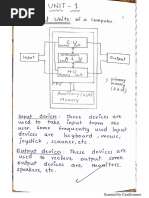 UNIT - 1
Units of a Computer
C.U.
Input
A L U
Output
M.U.
primary
CPU
Auxiliary
Memory
Input devices: These devices are
used to take input from the
user. Some frequently used input
devices are keyboard, mouse,
joystick, scanner, etc.
Output devices: These devices are
used to receive output. Some
output devices are monitors,
speakers, etc.
Scanned by CamScanner